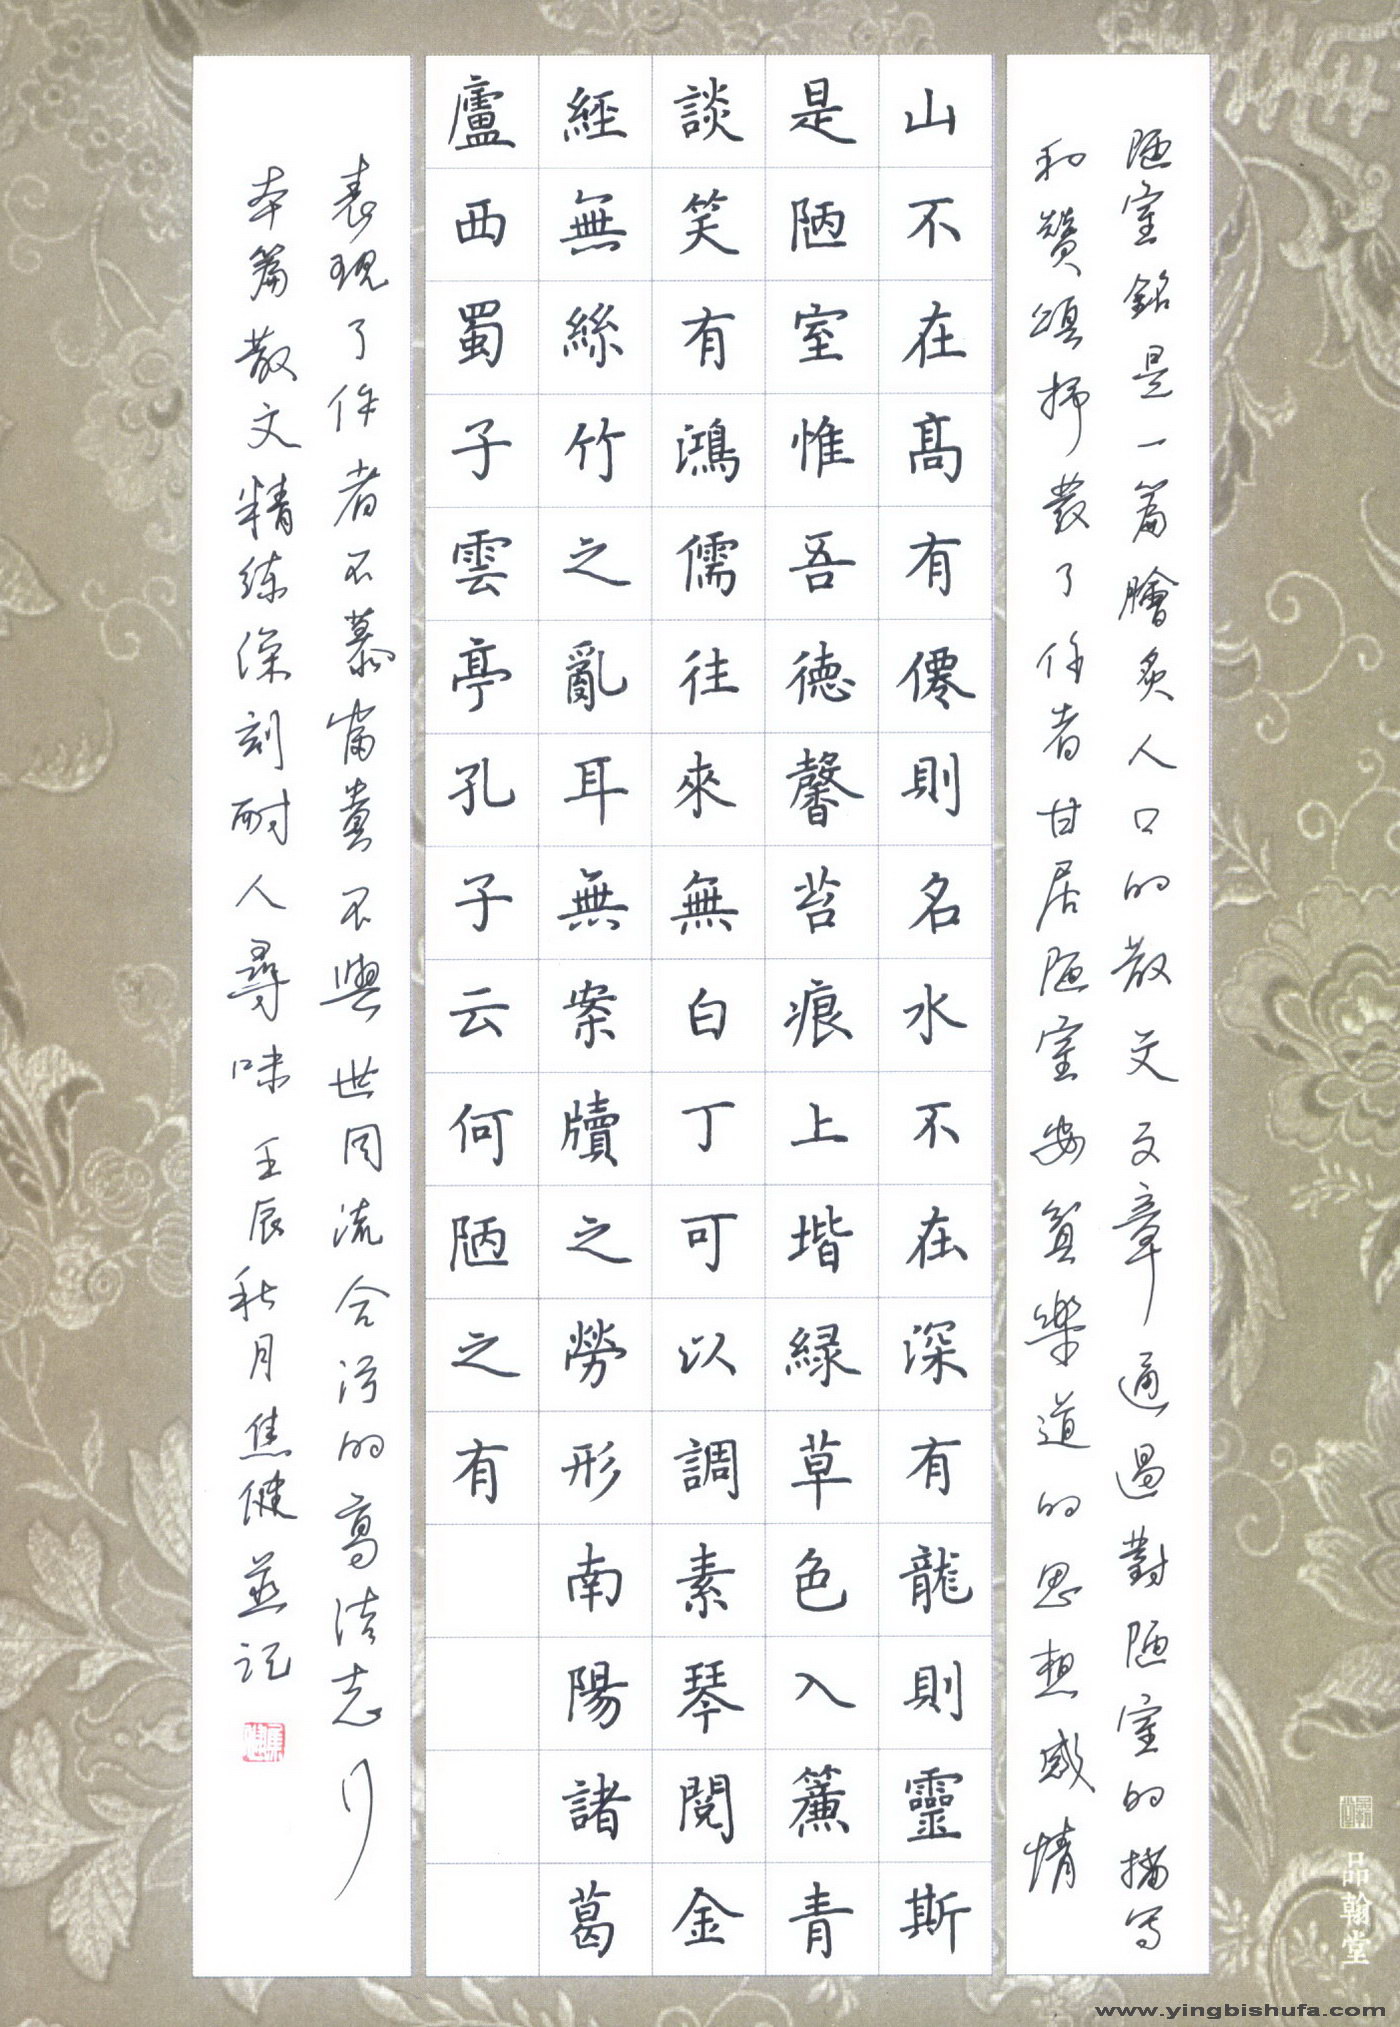 陋室銘是一篇膾炙人口的散文文章通過對陋室的描写
和贊頌抒發了作者甘居陋室安貧樂道的思想感情
山不在高有僊則名水不在深有龍則靈斯
是陋室惟吾德馨苔痕上堦緑草色入簾青
談笑有鴻儒往來無白丁可以調素琴閱金
經無絲竹之亂耳無案牘之勞形南陽諸葛
廬西蜀子雲亭孔子云何陋之有
表現了作者不慕富貴不與世同流合污的高洁志行
本篇散文精练深刻耐人尋味 壬辰秋月焦健並记
焦健
品翰堂
www.yingbishufa.com